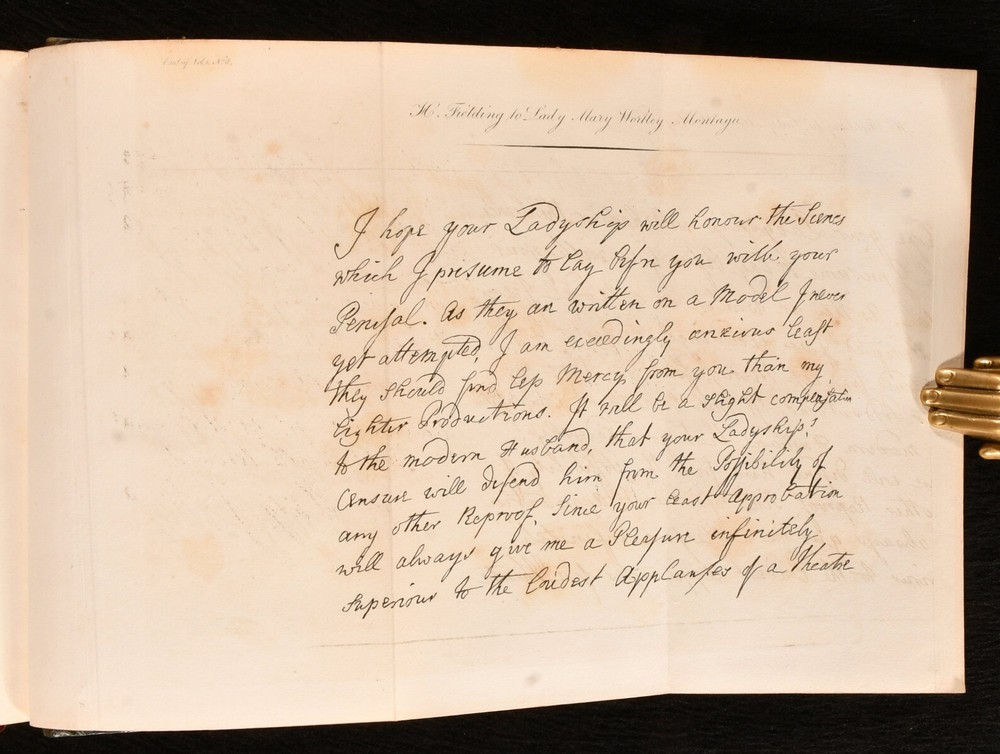 H. Fielding to Lady Mary Wortley Montagu
I hope your Ladyship will honour the Scenes
which I presume to lay before you with your
Perusal. As they are written on a Model I never
yet attempted, I am exceedingly anxious least
they should find less Mercy from you than my
lighter Productions. It will be a slight compensation
to the modern Husband, that your Ladyship's
Censure will defend him from the Possibility of
any other Reproof, Since your least Approbation
will always give me a Pleasure infinitely
superiour to the loudest Applauses of a Theatre